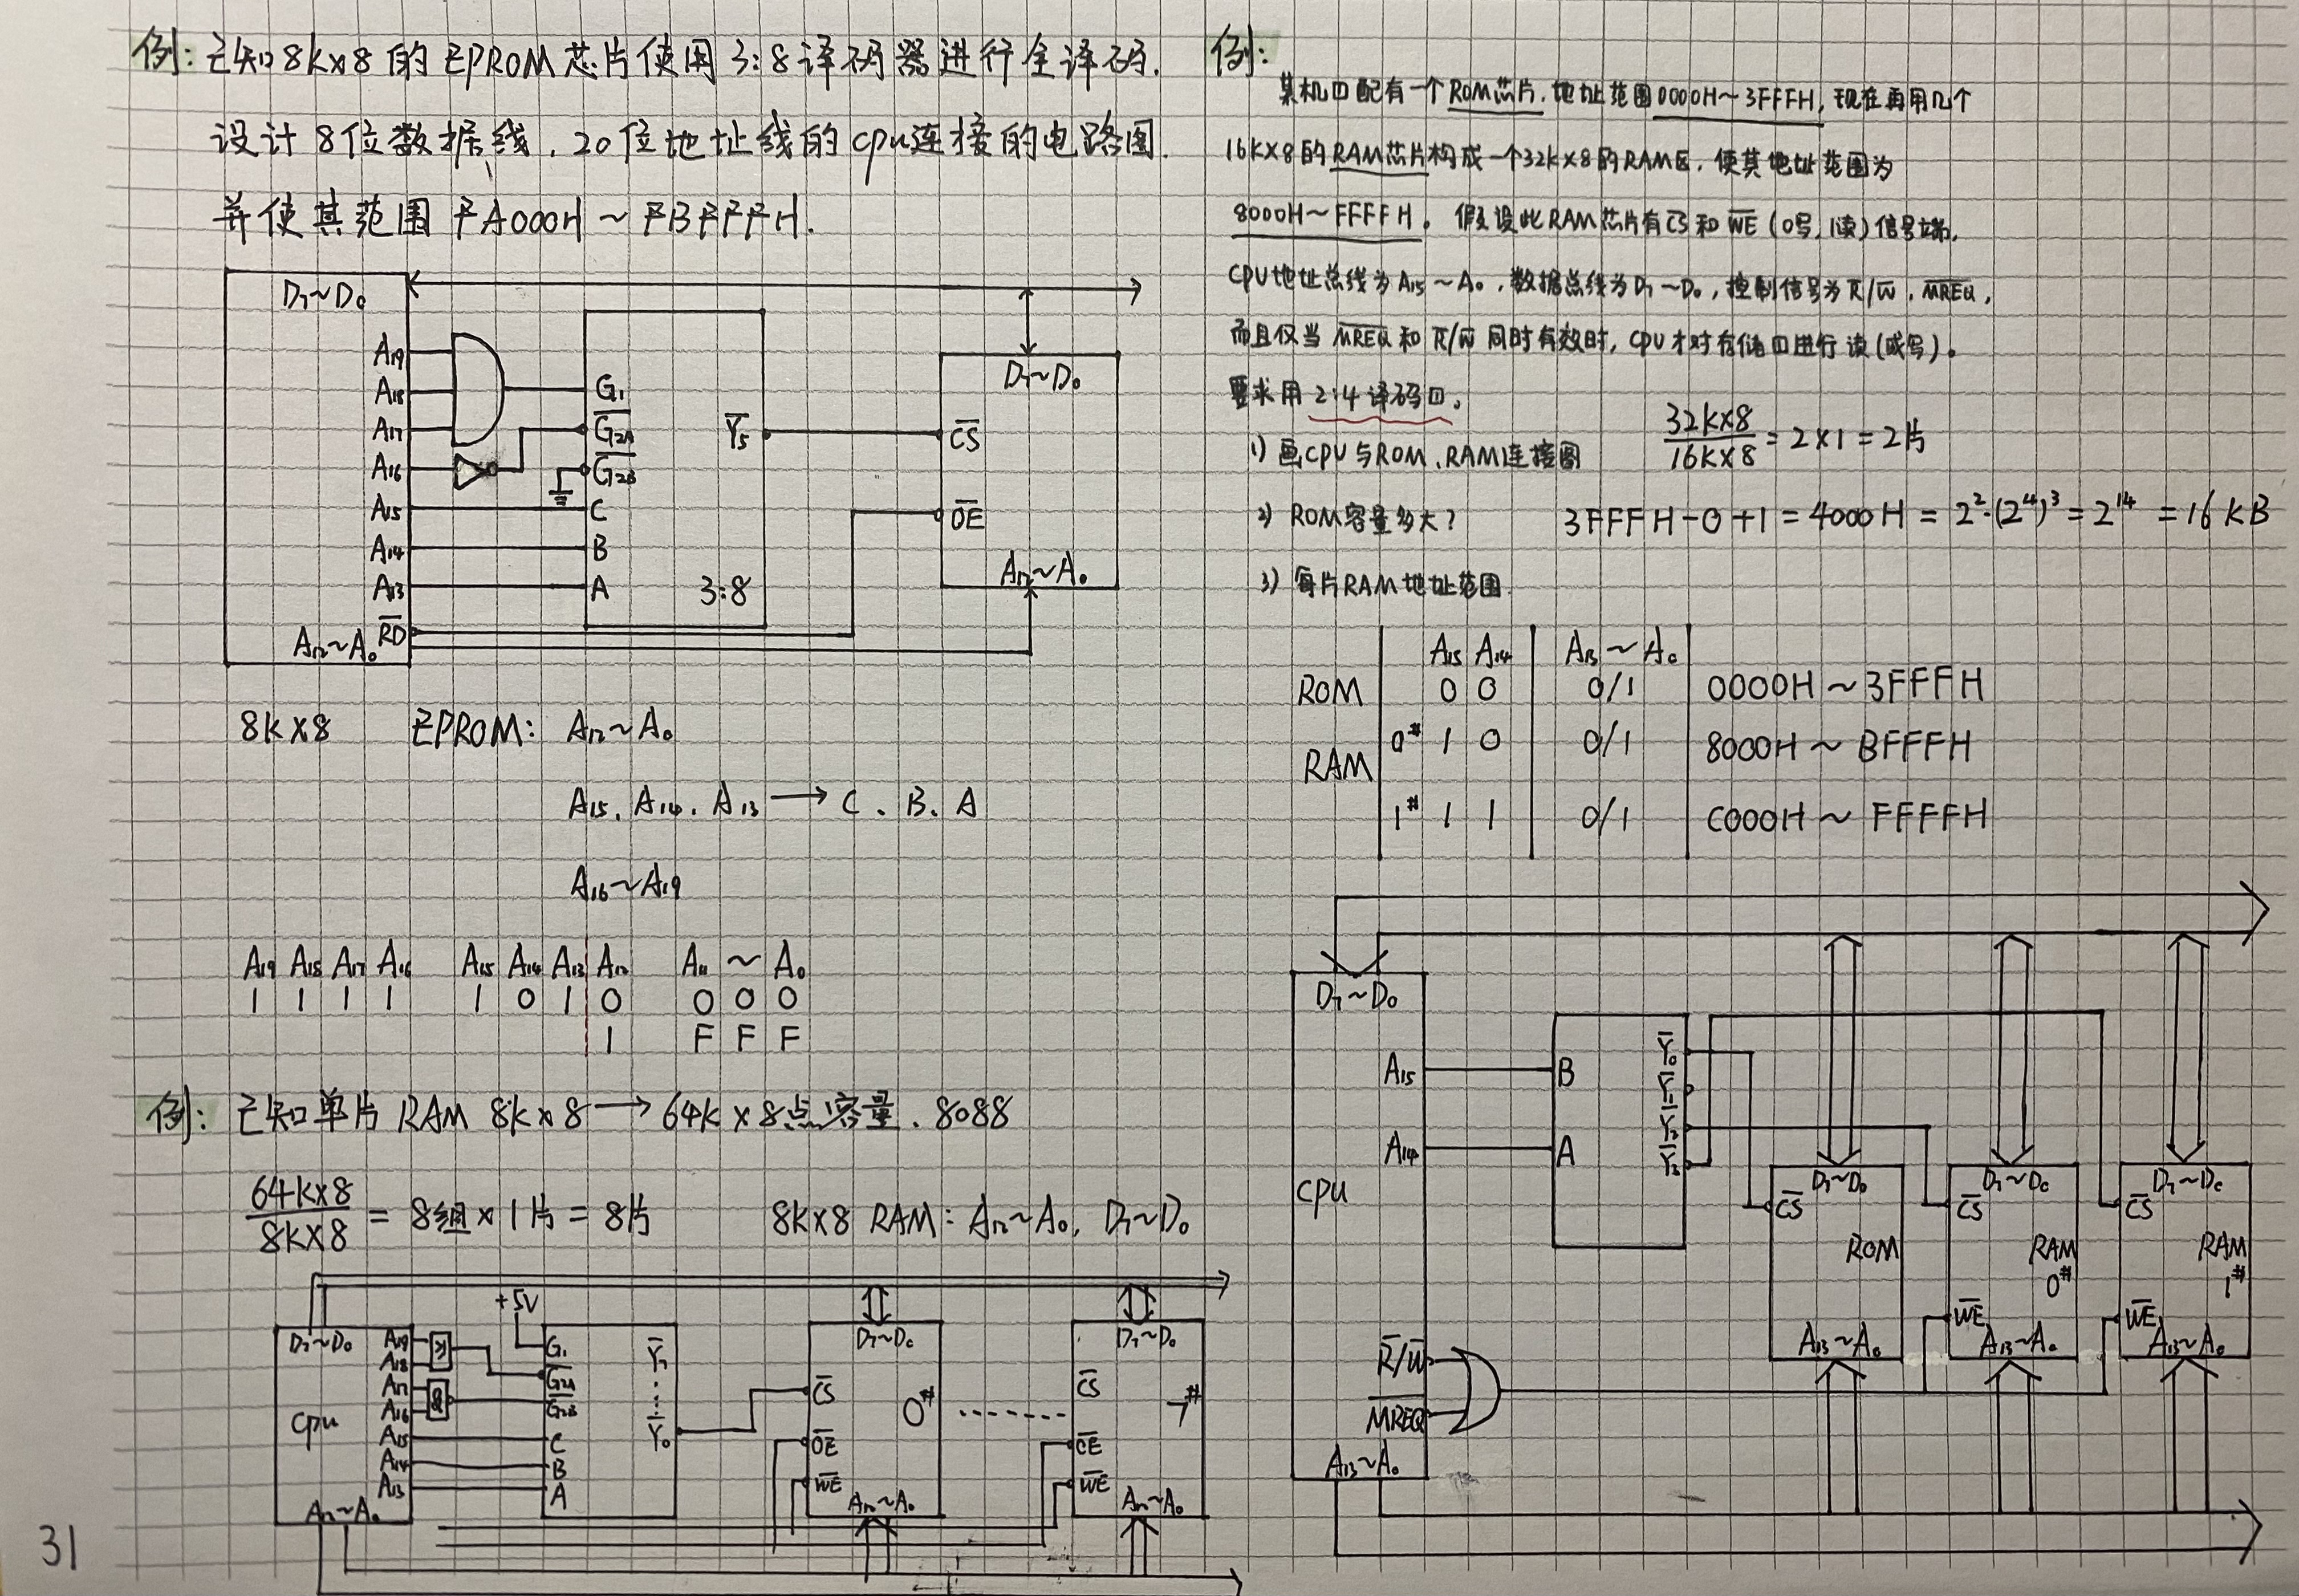 例: 已知8K×8的EPROM芯片使用3:8译码器进行全译码.
设计8位数据线, 20位地址线的cpu连接的电路图.
并使其范围FA000H~FBFFFH.
D₇~D₀
A₁₉
A₁₈
A₁₇
A₁₆
A₁₅
A₁₄
A₁₃
R̅D̅
A₁₂~A₀
G₁
G̅₂A̅
G̅₂B̅
C
B
A
Y̅₅
3:8
D₇~D₀
C̅S̅
O̅E̅
A₁₂~A₀
8K×8 EPROM: A₁₂~A₀
A₁₅. A₁₄. A₁₃ → C. B. A
A₁₆~A₁₉
A₁₉ A₁₈ A₁₇ A₁₆ A₁₅ A₁₄ A₁₃ A₁₂ A₁₁ ~ A₀
1 1 1 1 1 0 1 0 0 0 0
1 F F F
例: 已知单片RAM 8K×8 → 64K×8点容量. 8088
64K×8/8K×8 = 8组×1片 = 8片 8K×8 RAM: A₁₂~A₀, D₇~D₀
+5V
D₇~D₀
A₁₉
A₁₈
A₁₇
A₁₆
A₁₅
A₁₄
A₁₃
cpu
A₁₂~A₀
&
G₁
G̅₂A̅
G̅₂B̅
C
B
A
Y̅₇
Y̅₀
D₇~D₀
C̅S̅
0#
O̅E̅
W̅E̅
A₁₂~A₀
D₇~D₀
C̅S̅
7#
O̅E̅
W̅E̅
A₁₂~A₀
31
例:
某机口配有一个ROM芯片, 地址范围0000H~3FFFH, 现在再用几个
16K×8的RAM芯片构成一个32K×8的RAM区, 使其地址范围为
8000H~FFFFH。假设此RAM芯片有C̅S̅和W̅E̅(0写,1读)信号端,
CPU地址总线为A₁₅~A₀, 数据总线为D₇~D₀, 控制信号为R̅/W̅, M̅R̅E̅Q̅,
而且仅当M̅R̅E̅Q̅和R̅/W̅同时有效时, CPU才对存储口进行读(或写)。
要求用2:4译码口。
1) 画CPU与ROM、RAM连接图
32K×8/16K×8 = 2×1 = 2片
2) ROM容量多大? 3FFFH-0+1 = 4000H = 2²·(2⁴)³ = 2¹⁴ = 16KB
3) 每片RAM地址范围
A₁₅ A₁₄ A₁₃~A₀
ROM 0 0 0/1 0000H~3FFFH
0# 1 0 0/1 8000H~BFFFH
RAM
1# 1 1 0/1 C000H~FFFFH
D₇~D₀
A₁₅
A₁₄
cpu
R̅/W̅
M̅R̅E̅Q̅
A₁₃~A₀
B
A
Y̅₀
Y̅₁
Y̅₂
Y̅₃
D₇~D₀
C̅S̅
ROM
A₁₃~A₀
D₇~D₀
C̅S̅
RAM
0#
W̅E̅
A₁₃~A₀
D₇~D₀
C̅S̅
RAM
1#
W̅E̅
A₁₃~A₀